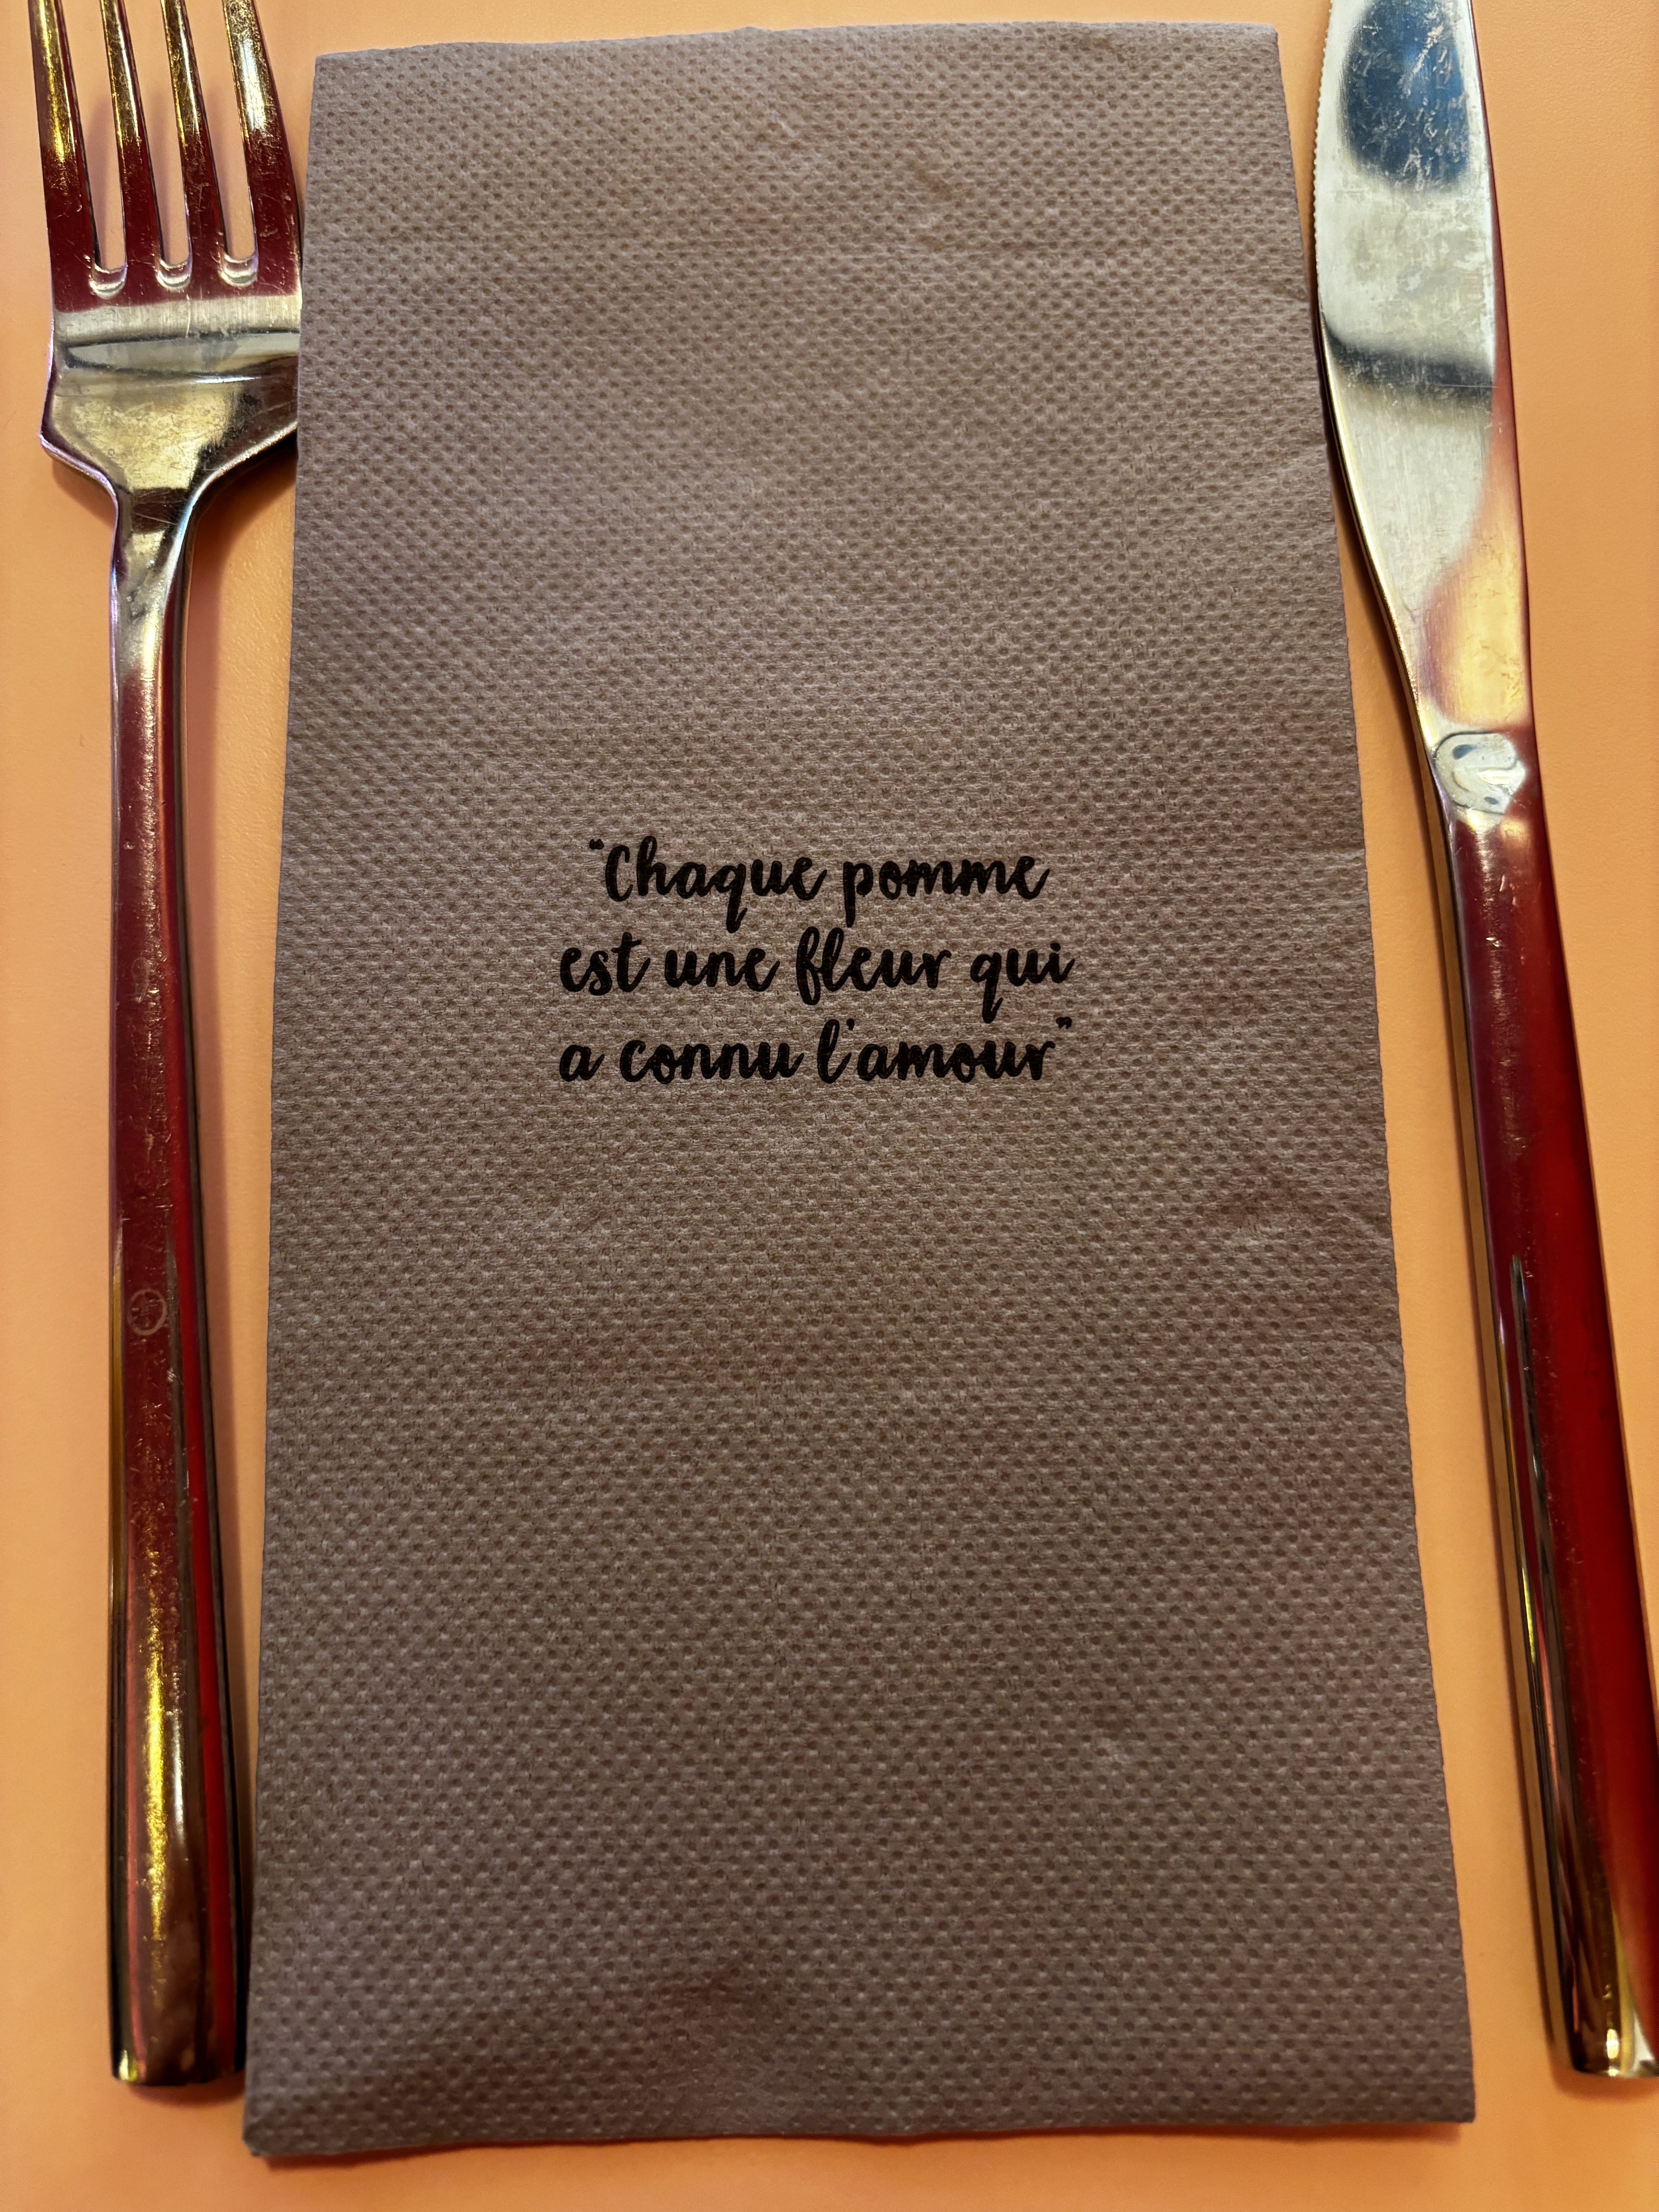 "Chaque pomme
est une fleur qui
a connu l'amour"